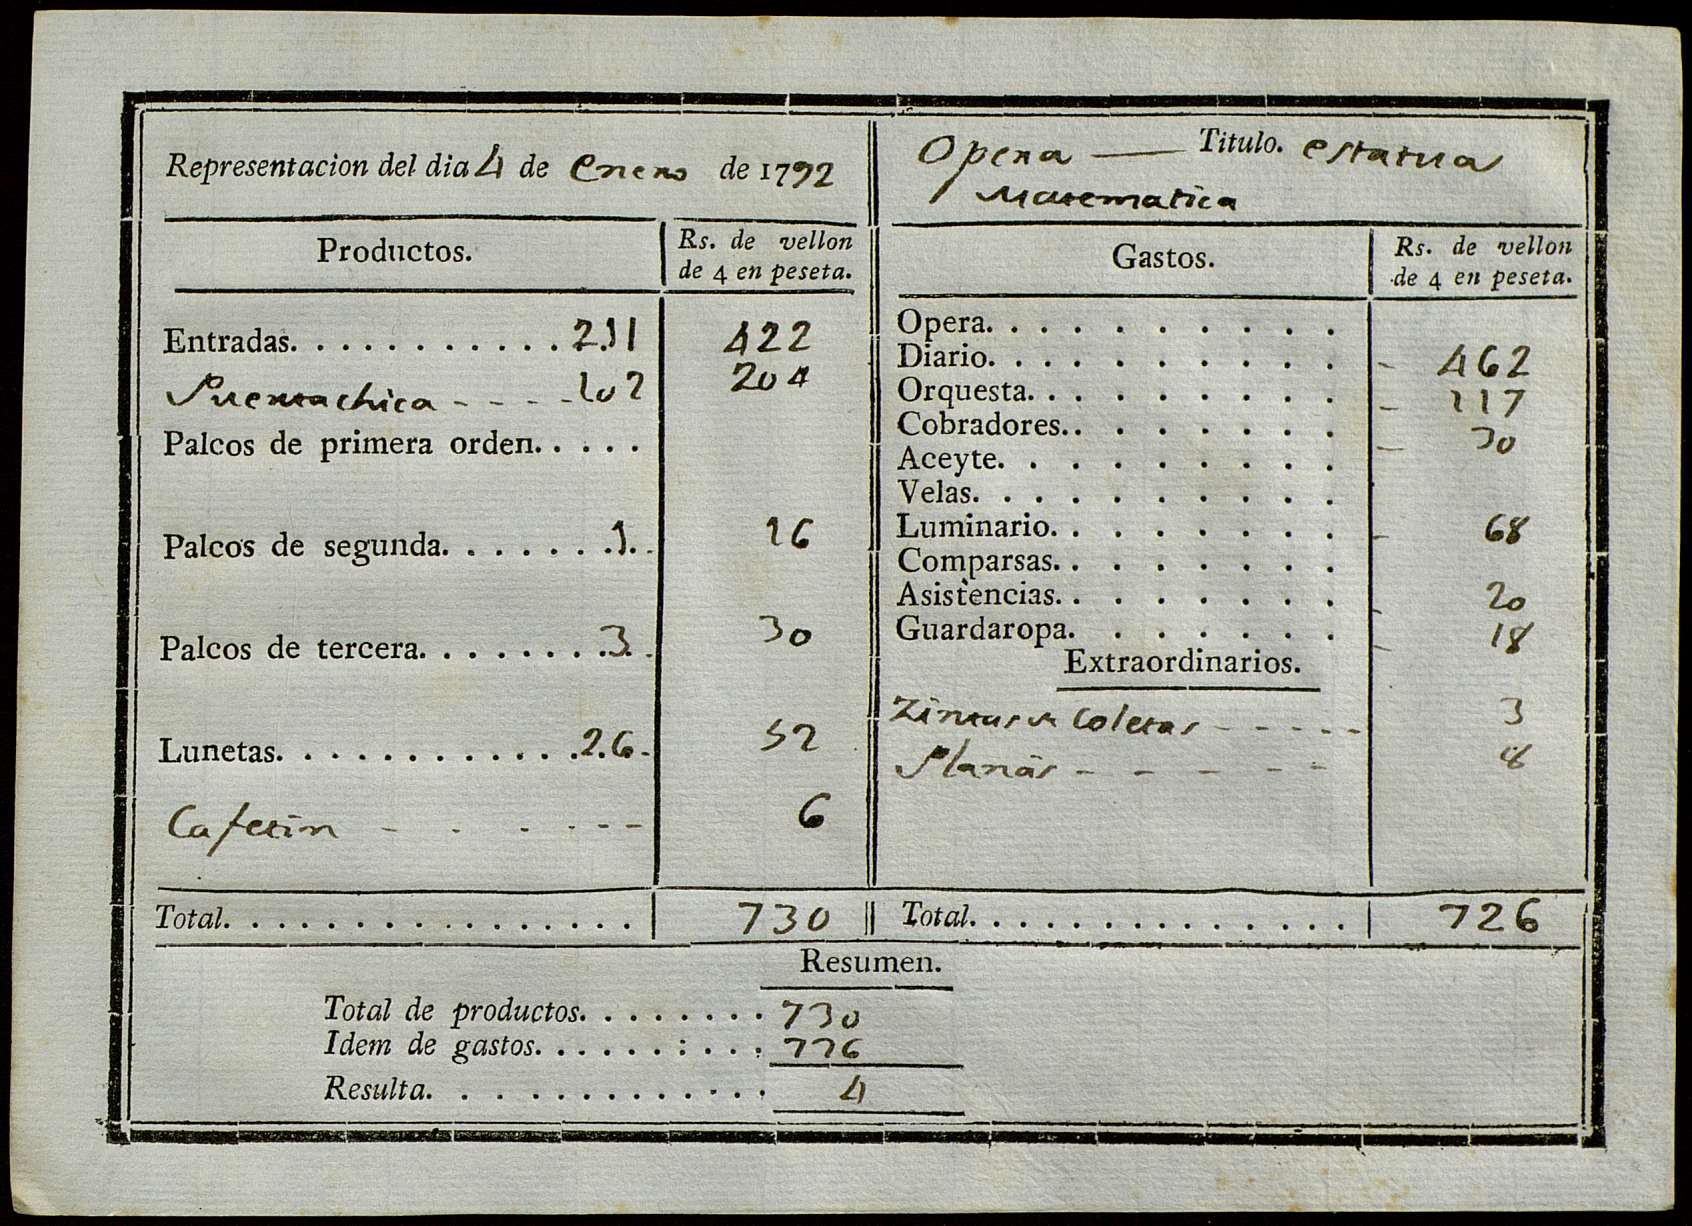 Representacion del dia 4 de Enero de 1792
Opera — Titulo. estatua
Matematica
Productos. Rs. de vellon
de 4 en peseta.
Entradas. . . . . . . . . . . . 211 422
Puertachica - - - - 102 204
Palcos de primera orden. . . . .
Palcos de segunda. . . . . . . . 1. . 16
Palcos de tercera. . . . . . . . .3. . 30
Lunetas. . . . . . . . . . . . .26- 52
Cafetin - - - - - - 6
Total. . . . . . . . . . . . . . . . . 730
Gastos. Rs. de vellon
de 4 en peseta.
Opera. . . . . . . . . .
Diario. . . . . . . . . . - 462
Orquesta. . . . . . . . . - 117
Cobradores. . . . . . . . - 30
Aceyte. . . . . . . . .
Velas. . . . . . . . . .
Luminario. . . . . . . . - 68
Comparsas. . . . . . . .
Asistencias. . . . . . . . - 20
Guardaropa. . . . . . . - 18
Extraordinarios.
Zintas Coletas - - - - - 3
Planas - - - - - - 8
Total. . . . . . . . . . . . . . 726
Resumen.
Total de productos. . . . . . . . 730
Idem de gastos. . . . . . : . . . 726
Resulta. . . . . . . . . . . . . 4